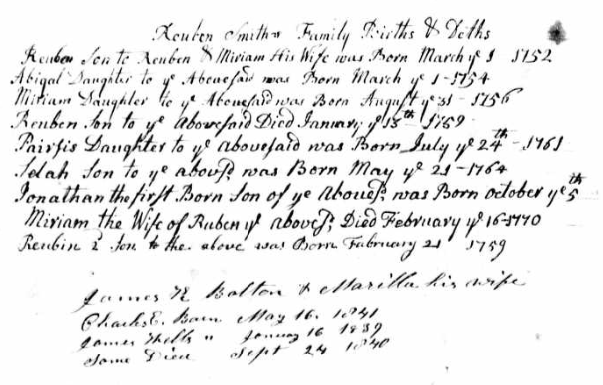 Reuben Smiths Family Births & Deths
Reuben Son to Reuben & Miriam His Wife was Born March ye 1 1752
Abigal Daughter to ye Abovesaid was Born March ye 1-1754
Miriam Daughter to ye Abovesaid was Born August ye 31-1756
Reuben Son to ye abovesaid Died January ye 15th-1759
Daughter to ye abovesaid was Born July ye 24th-1761
Selah Son to ye aboves; was Born May ye 21-1764
Jonathan the first Born Son of ye aboves; was Born october ye 5th
Miriam the Wife of Ruben ye aboves; Died February ye 16-1770
Reubin 2 Son to the above was Born Fabruary 21 1759
James E Balton & Marilla his wife
Charles E. Born May 16. 1841
James Wells " January 16 1839
Same Died Sept 24 1840